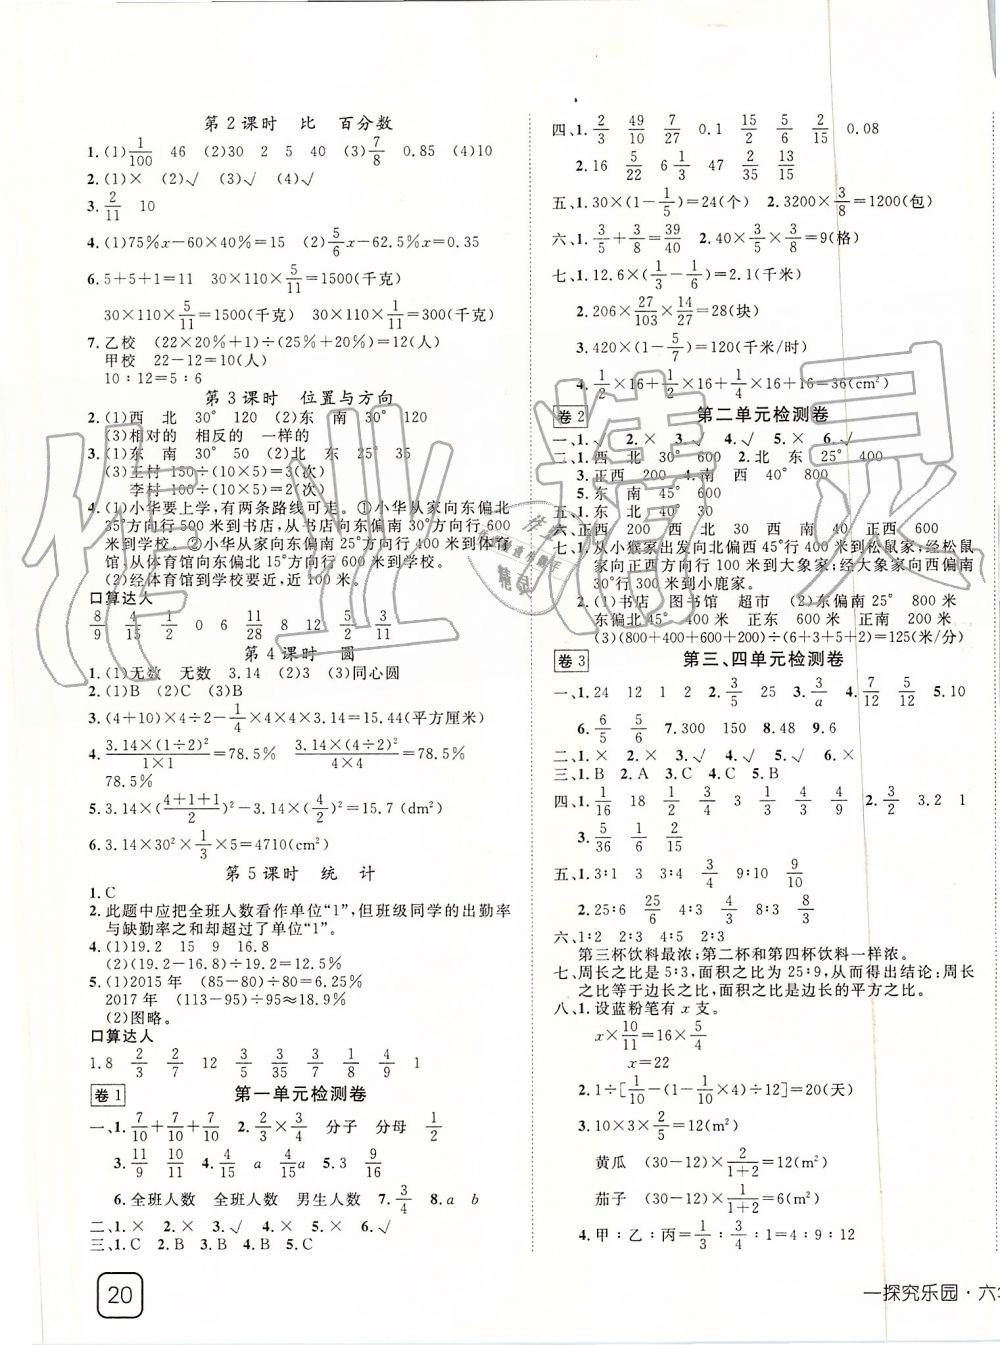 第2课时 比 百分数
1.(1)1/100 46 (2)30 2 5 40 (3)7/8 0.85 (4)10
2.(1)× (2)√ (3)√ (4)√
3.2/11 10
4.(1)75%x-60×40%=15 (2)5/6x-62.5%x=0.35
6.5+5+1=11 30×110×5/11=1500(千克)
30×110×5/11=1500(千克) 30×110×1/11=300(千克)
7.乙校 (22×20%+1)÷(25%+20%)=12(人)
甲校 22-12=10(人)
10∶12=5∶6
第3课时 位置与方向
2.(1)西 北 30° 120 (2)东 南 30° 120
(3)相对的 相反的 一样的
3.(1)东 南 30 50 (2)北 东 25° 35
(3)王村 150÷(100÷2)=3(次)
李村 100÷(100÷2)=2(次)
4.(1)小华要上学,有两条路线可走。①小华从家向东偏北
35°方向行500米到书店,从书店向东偏南30°方向行600
米到学校。②小华从家向东偏南25°方向行400米到体育
馆,从体育馆向东偏北50°方向行300米到学校。
(2)经体育馆到学校要近一些。
口算达人
8/9 4/15 1/2 0 6 11/28 8 12 2/5 3/11
第4课时 圆
1.(1)无数 无数 3.14 (2)3 (3)同心圆
2.(1)B (2)C (3)B
3.(4+10)×4÷2-1/4×4×4×3.14=15.44(平方厘米)
4.3.14×(1÷2)²/1×1=78.5% 3.14×(4÷2)²/4×4=78.5%
78.5%
5.3.14×(4+1+1/2)²-3.14×(4/2)²=15.7(dm²)
6.3.14×30²×1/3×5=4710(cm²)
第5课时 统 计
1.C
2.此题中应把全班人数看作单位“1”,但班级同学的出勤率
与缺勤率之和却超过了单位“1”。
4.(1)19.2 15 9 16.8
(2)(19.2-16.8)÷19.2=12.5%
5.(1)2015年 (85-80)÷80=6.25%
2017年 (113-95)÷95≈18.9%
(2)图略。
口算达人
1.8 2/3 2/7 12 3/5 3/35 3/4 1/8 4/9 1
卷1 第一单元检测卷
一、1.7/10+7/10+7/10 2.2/3×3/4 分子 分母 1/2
3.11/9 10/11 4.4/15 a 4/15a 5.3 9/16
6.全班人数 全班人数 男生人数 7.3/4 8.a b
二、1.× 2.× 3.√ 4.√ 5.× 6.√
三、1.C 2.B 3.B 4.B 5.C
20
四、1.2/3 49/10 7/27 0.1 15/2 5/6 2/15 0.08
2.16 5/22 6 1/3 47 2/35 13/15
五、1.30×(1-1/5)=24(个) 2.3200×3/8=1200(包)
六、1.3/5+3/8=39/40 2.40×3/5×3/8=9(格)
七、1.12.6×(1/3-1/6)=2.1(千米)
2.206×27/103×14/27=28(块)
3.420×(1-5/7)=120(千米/时)
4.1/2×16+1/2×16+1/4×16+16=36(cm²)
卷2 第二单元检测卷
一、1.√ 2.× 3.√ 4.√ 5.× 6.√
二、1.西 北 30° 600 2.北 东 25°
3.正西 200 4.南 西 40° 800
5.东 南 45° 600
五、1.东 北 40° 30
六、正西 200 西 南 30° 南 西 40 正西 600
七、1.从小猴家出发向北偏西45°行400米到松鼠家;经松鼠
家向正西方向行600米到大象家;经大象家向西偏南
30°行200米到小鹿家。
2.(1)书店 图书馆 超市 (2)东偏北25° 800米
东偏北45° 400米 正东 600米 正南 200米
(3)(800+400+600+200)÷(6+3+5+2)=125(米/分)
卷3 第三、四单元检测卷
一、1.24 12 1 2 2.3/5 25 3.3/a 4.7/12 5/12 5.10
6.6/5 5/6 7.300 150 8.48 9.6
二、1.× 2.× 3.√ 4.√ 5.√ 6.×
三、1.B 2.A 3.C 4.C 5.B
四、1.1/16 18 1/2 3/4 3 1/3 4/3 4/9 2.3/2 3.2 1
3.5/36 1/6 2/15
五、1.3∶1 3 3∶4 3/4 9∶10 9/10
2.25∶6 25/6 4∶3 4/3 8∶3 8/3
六、1∶2 2∶3 4∶5 2∶3
第三杯饮料最浓;第二杯和第四杯饮料一样浓。
七、周长之比是5∶3,面积之比为25∶9,从而得出结论:周长
之比等于边长之比,面积之比是边长的平方之比。
八、1.设蓝粉笔有x支。
x×10/11=16×5/4
x=22
2.1÷[1/10-(1-1/10×4)÷12]=20(天)
3.10×3×2/5=12(m²)
黄瓜 (30-12)×2/1+2=12(m²)
茄子 (30-12)×1/1+2=6(m²)
4.甲∶乙∶丙=1/3∶3/4∶1=4∶9∶12
一探究乐园·六
作业精灵